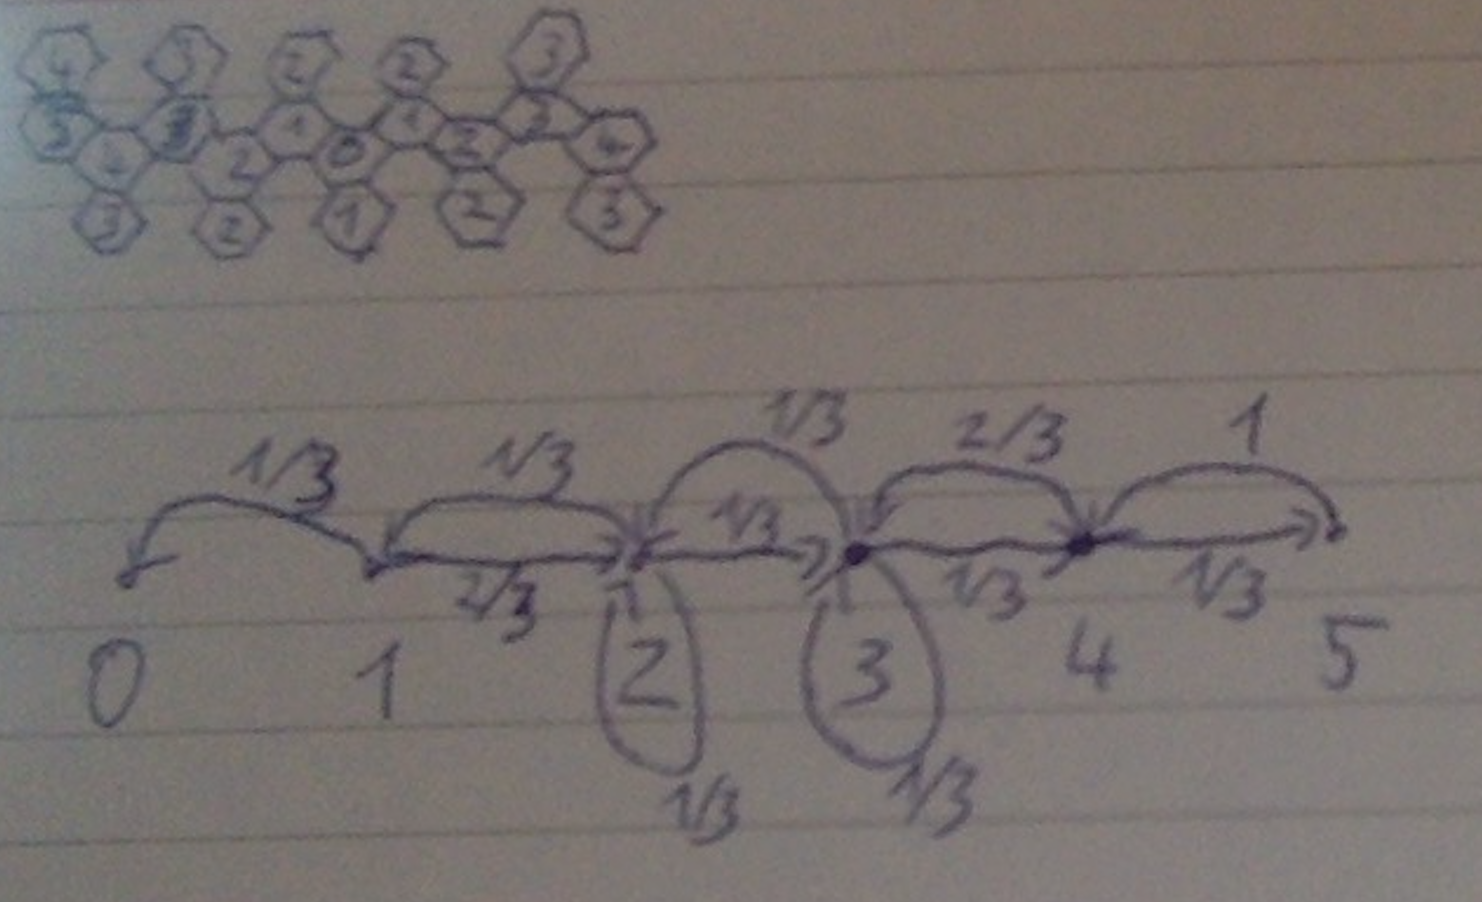 4 3 2 2 3
3 1 1 2
2 0 2 4
3 2 1 2 3
1/3 1/3 1/3 2/3 1
2/3 1/3 1/3 1/3
0 1 2 3 4 5
1/3 1/3